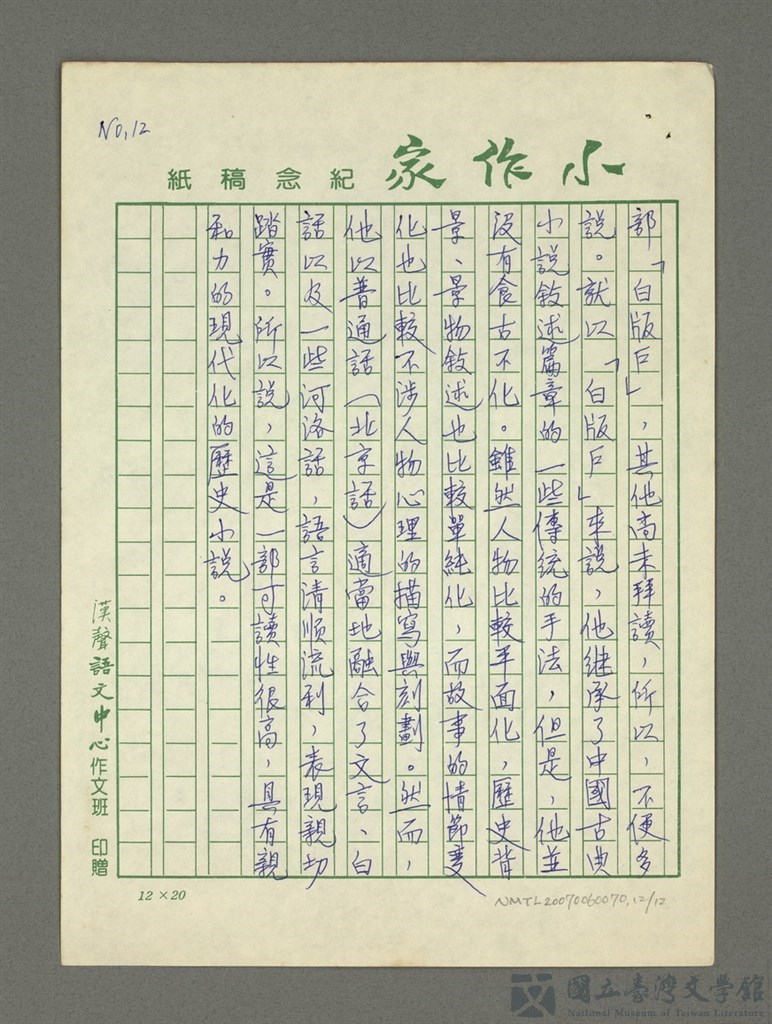 NO,12
小作家 紀念稿紙
部「白版戶」，其他尚未拜讀，所以，不便多
說。就以「白版戶」來說，他継承了中國古典
小說敘述篇章的一些傳統的手法，但是，他並
沒有食古不化。雖然人物比較平面化，歷史背
景、景物敘述也比較單純化，而故事的情節變
化也比較不涉人物心理的描寫與刻劃。然而，
他以普通話（北京話）適當地融合了文言、白
話以及一些河洛話，語言清順流利，表現親切
踏實。所以說，這是一部可讀性很高，具有親
和力的現代化的歷史小說。
漢聲語文中心作文班 印贈
12×20
NMTL20070060070,12/12
國立臺灣文學館
National Museum of Taiwan Literature